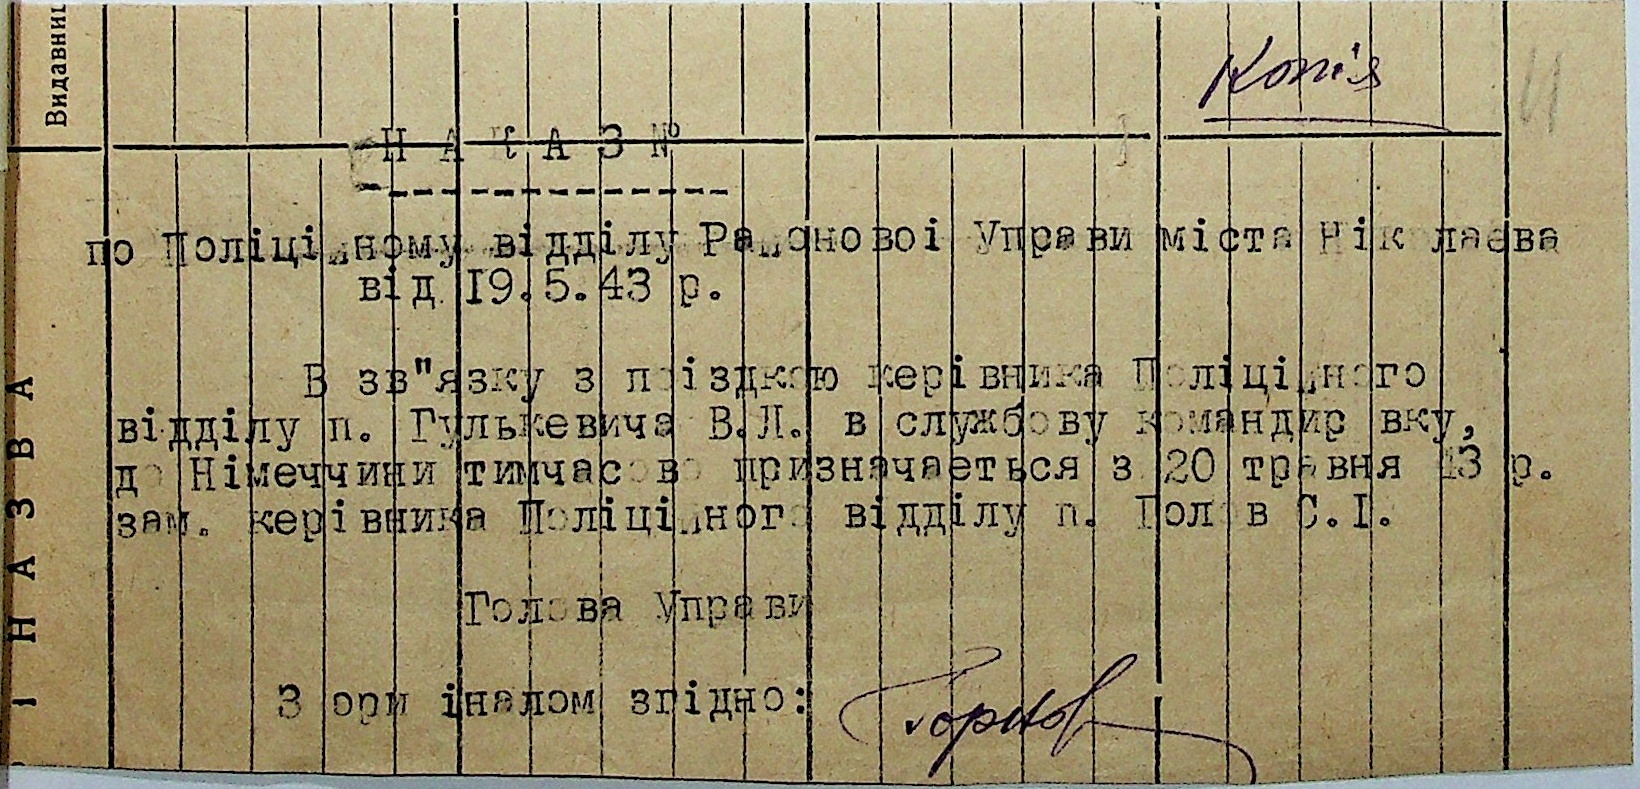 Видавниц
Копія
НАКАЗ №
по Поліційному відділу Районовоі Управи міста Ніколаєва
від 19.5.43 р.
В зв"язку з поіздкою керівника Поліційного
відділу п. Гулькевича В.Л. в службову командировку,
до Німеччини тимчасово призначається з 20 травня 43 р.
зам. керівника Поліційного відділу п. Голов С.І.
Голова Управи
З оригіналом згідно:
І НАЗВА